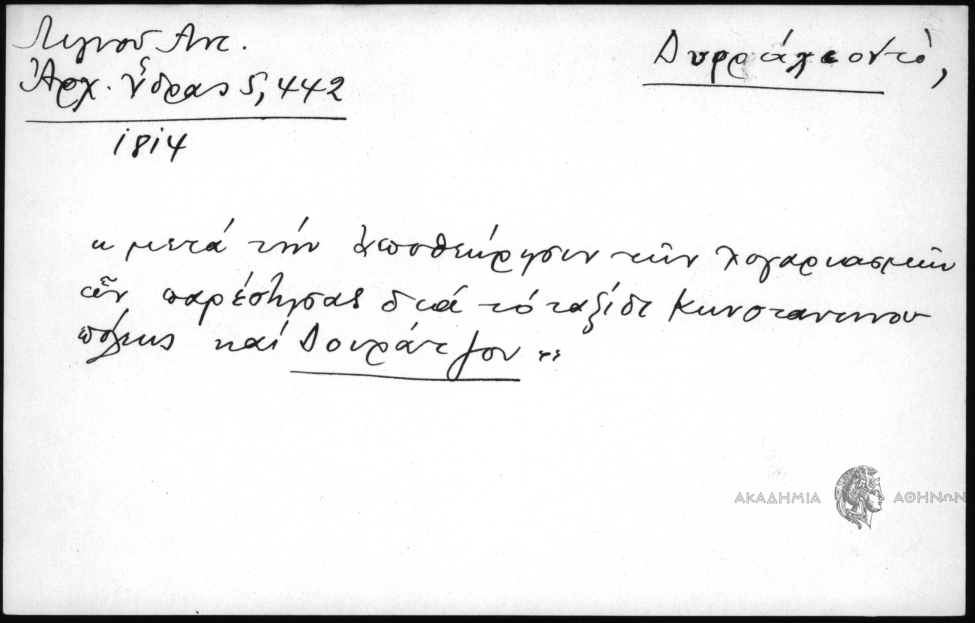 Λιγνού Αντ.
Ἀρχ. ὕδρας 5, 442
1814
Δυρράχιον τό,
κ μετά τήν ἐπιθεώρησιν τῶν λογαριασμῶν
ὧν παρέστησας διά τό ταξίδι Κωνσταντινου
πόλεως καί Δουράτζον
ΑΚΑΔΗΜΙΑ ΑΘΗΝΩΝ